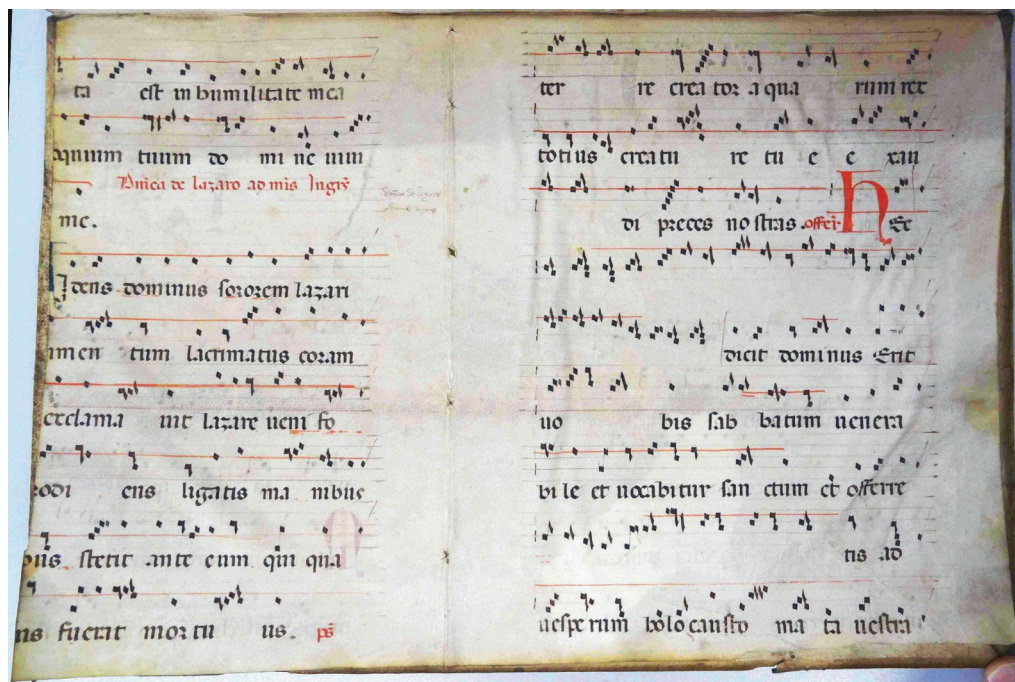 ta est in humilitate mea
oquium tuum do mi ne uiui
Dnica de lazaro ad mis Ingrs
me.
idens dominus sororem lazari
imen tum lacrimatus coram
exclama uit lazare ueni fo
rodi ens ligatis ma nibus
bus stetit ante eum qui qua
us fuerat mortu us. ps
ter re creator aqua rum rex
totius creatu re tu e e xau
di preces nostras. offer. hEc
dicit dominus Erit
uo bis sab batum uenera
bi le et uocabitur san ctum et offerre
tis ad
uespe rum holocausto ma ta uestra